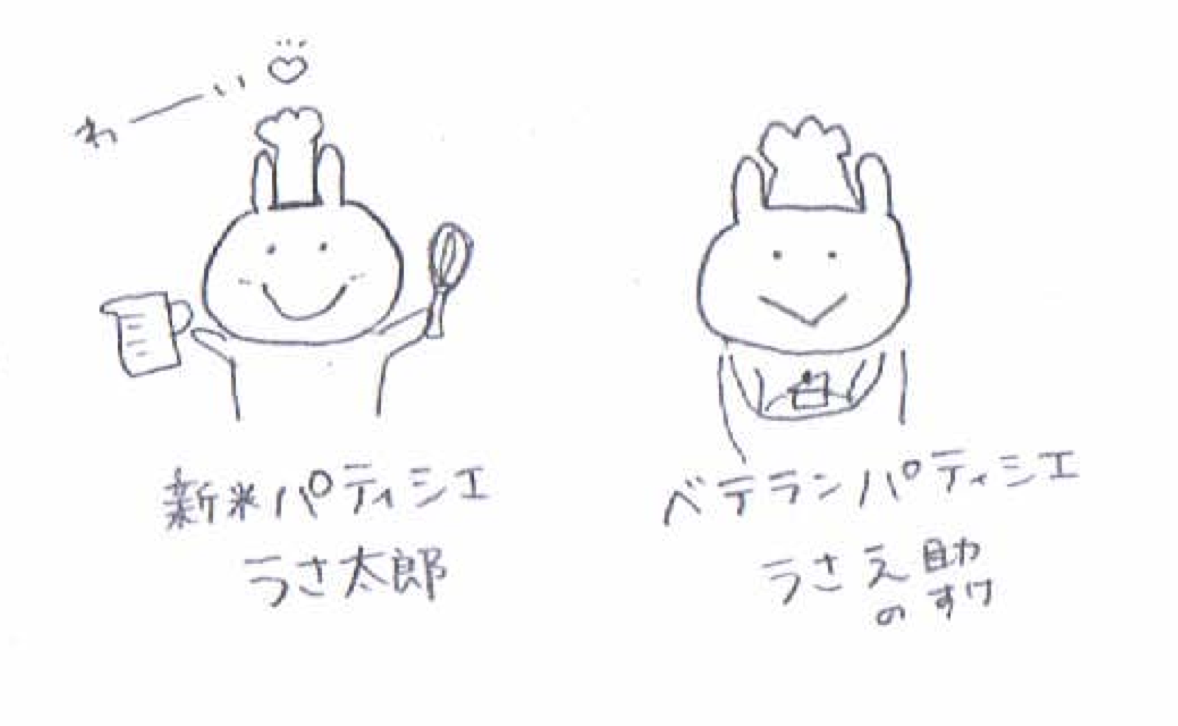 わーい♡
新米パティシエ
うさ太郎
ベテランパティシエ
うさえ助
のすけ